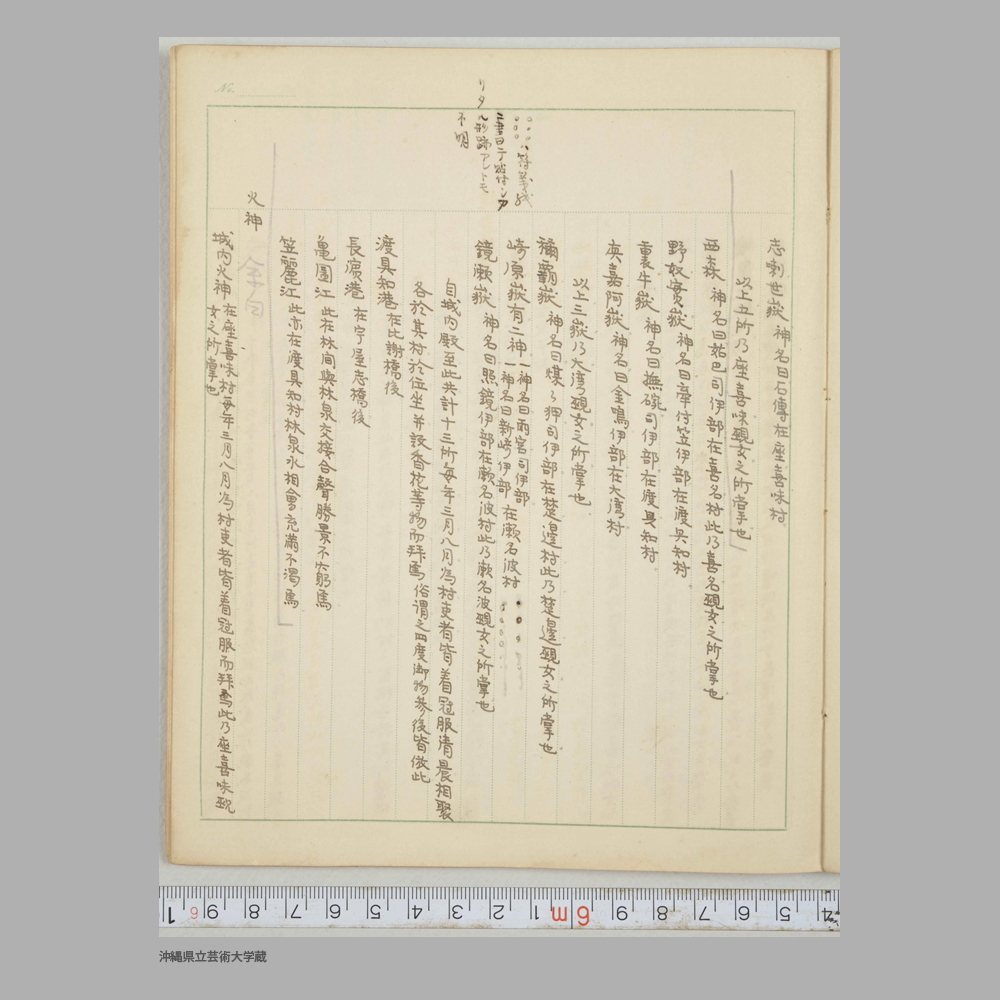 志喇世嶽 神名曰石傳在座喜味村
以上五所乃座喜味覡女之所掌也
西森 神名曰姑巴司伊部在喜名村此乃喜名覡女之所掌也
野奴實嶽 神名曰牽付笠伊部在渡具知村
裏牛嶽 神名曰撫碗司伊部在渡具知村
奥嘉阿嶽 神名曰金鳴伊部在大湾村
以上三嶽乃大湾覡女之所掌也
稱霸嶽 神名曰煤々押司伊部在楚邊村此乃楚邊覡女之所掌也
崎原嶽有二神 一神名曰雨宮司伊部 一神名曰新崎伊部 在瀬名波村
鏡瀬嶽 神名曰照鏡伊部在瀬名波村此乃瀬名波覡女之所掌也
自城内殿至此共計十三所毎年三月八月為村吏者皆着冠服清晨相聚
各於其村於位坐并設香花等物而拜焉俗謂之四度御物參後皆倣此
渡具知港 在比謝橋後
長濱港 在宇屋志橋後
亀圃江 此在林間與林泉交接合聲勝景不少焉
笠麗江 此亦在渡具知村林泉水相會充滿不濁焉
火神
城内火神 在座喜味村毎年三月八月為村吏者皆着冠服而拜焉此乃座喜味覡
女之所掌也
ル書曰テ貼付シタ
リタル形跡アレトモ
不明
No.
沖縄県立芸術大学蔵